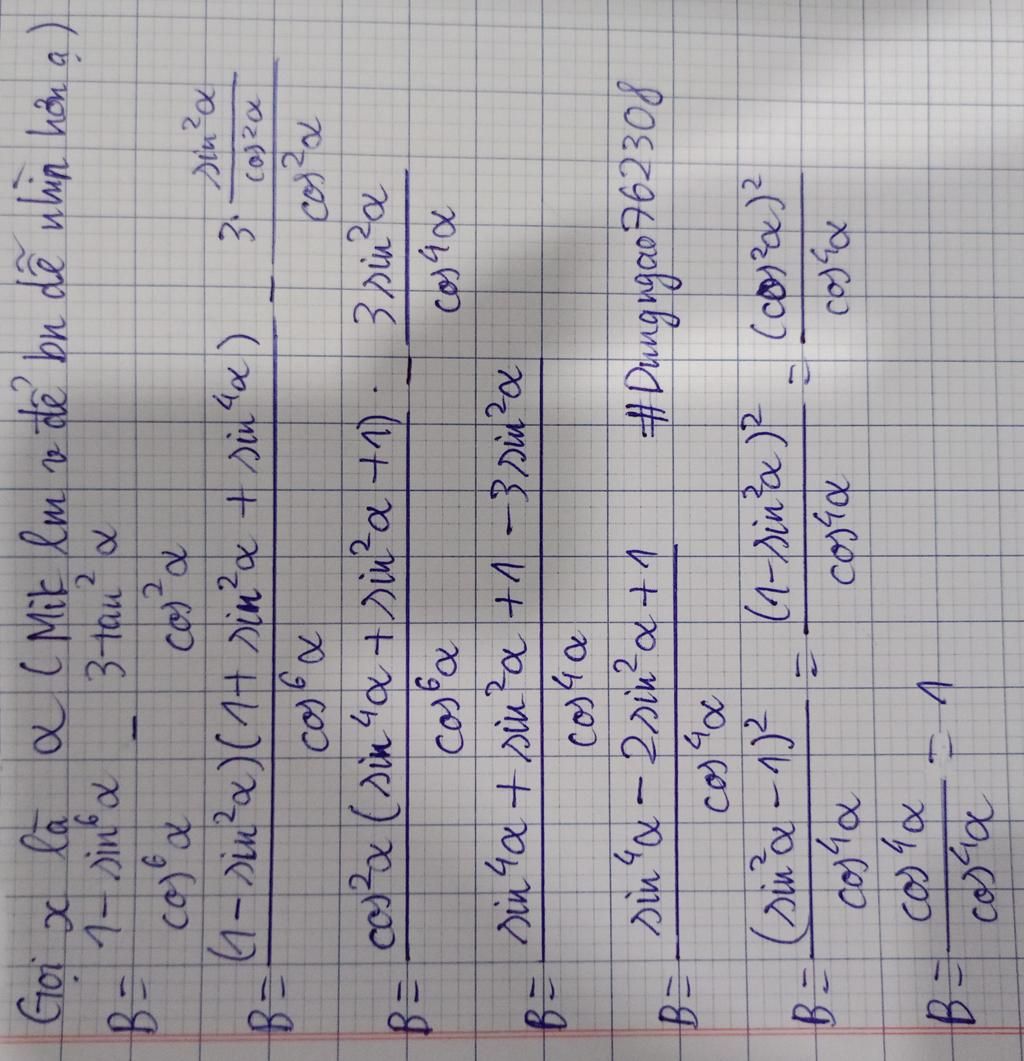 Gọi x là α (Mik lm v để bn dễ nhìn hơn ạ)
B = \frac{1 - sin⁶α}{cos⁶α} - \frac{3 tan²α}{cos²α}
B = \frac{(1 - sin²α)(1 + sin²α + sin⁴α)}{cos⁶α} - \frac{3 \cdot \frac{sin²α}{cos²α}}{cos²α}
B = \frac{cos²α (sin⁴α + sin²α + 1)}{cos⁶α} - \frac{3 sin²α}{cos⁴α}
B = \frac{sin⁴α + sin²α + 1 - 3 sin²α}{cos⁴α}
B = \frac{sin⁴α - 2 sin²α + 1}{cos⁴α} #Dungngao762308
B = \frac{(sin²α - 1)²}{cos⁴α} = \frac{(1 - sin²α)²}{cos⁴α} = \frac{(cos²α)²}{cos⁴α}
B = \frac{cos⁴α}{cos⁴α} = 1